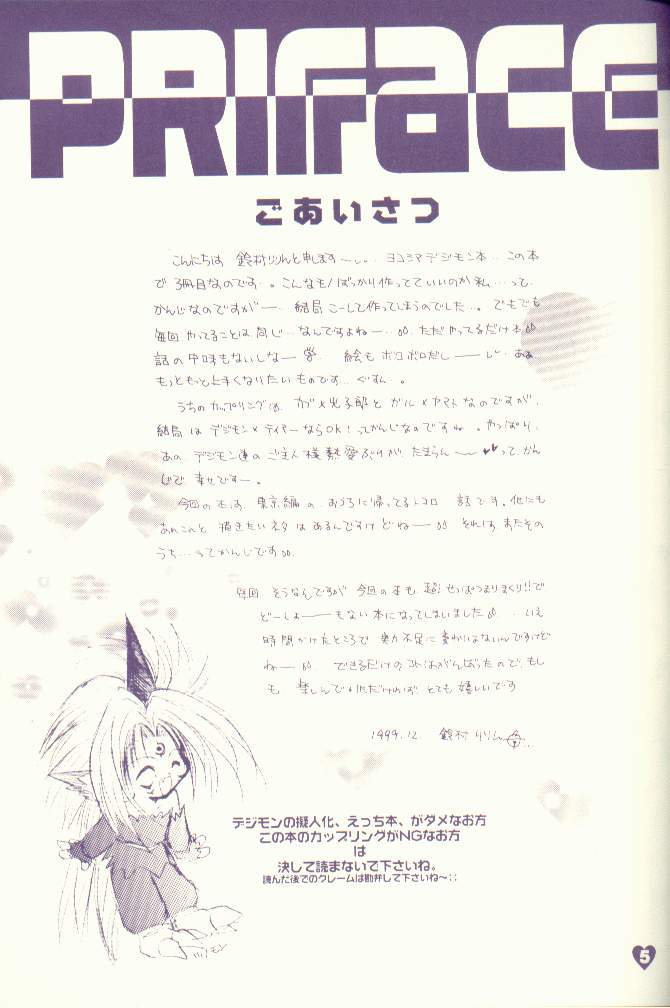 PRIFACE
ごあいさつ
こんにちは 鈴村りりんと申しますー ヨコシマデジモン本… この本
で 3冊目なのです…。こんなモノばっかり作ってていいのか私…って
かんじなのですがー… 結局こーして作ってしまうのでした…。でもでも
毎回 やってることは同じ…なんですよねー… ただやってるだけ
話の中味もないしなー 絵も ボロボロだしー
もっともっと上手くなりたいものです…ぐすん…。
うちのカップリングは、カブ×光子郎と ガル×ヤマト なのですが、
結局は デジモン×テイマーならOK!ってかんじなのですね。やっぱり、
あの デジモン達の ご主人様熱愛ぶりが、たまらんー ♥♥って かん
じで 幸せですー。
今回の本は 東京編の おうちに帰ってるトコロ 話です。他にも
あれこれと 描きたいネタ はあるんですけどねー それは またその
うち…ってかんじです
毎回 そうなんですが 今回の本も 超!せっぱつまりまくり!!で
どーしょーもない本になってしまいました …いえ
時間かけたところで 実力不足に変わりはないんですけど
ねー できるだけのコトはがんばったので、もし
も 楽しんでいただければ とても嬉しいです
1999.12. 鈴村りりん
デジモンの擬人化、えっち本、がダメなお方
この本のカップリングがNGなお方
は
決して読まないで下さいね。
読んだ後でのクレームは勘弁して下さいね〜;;
ツノモン
5